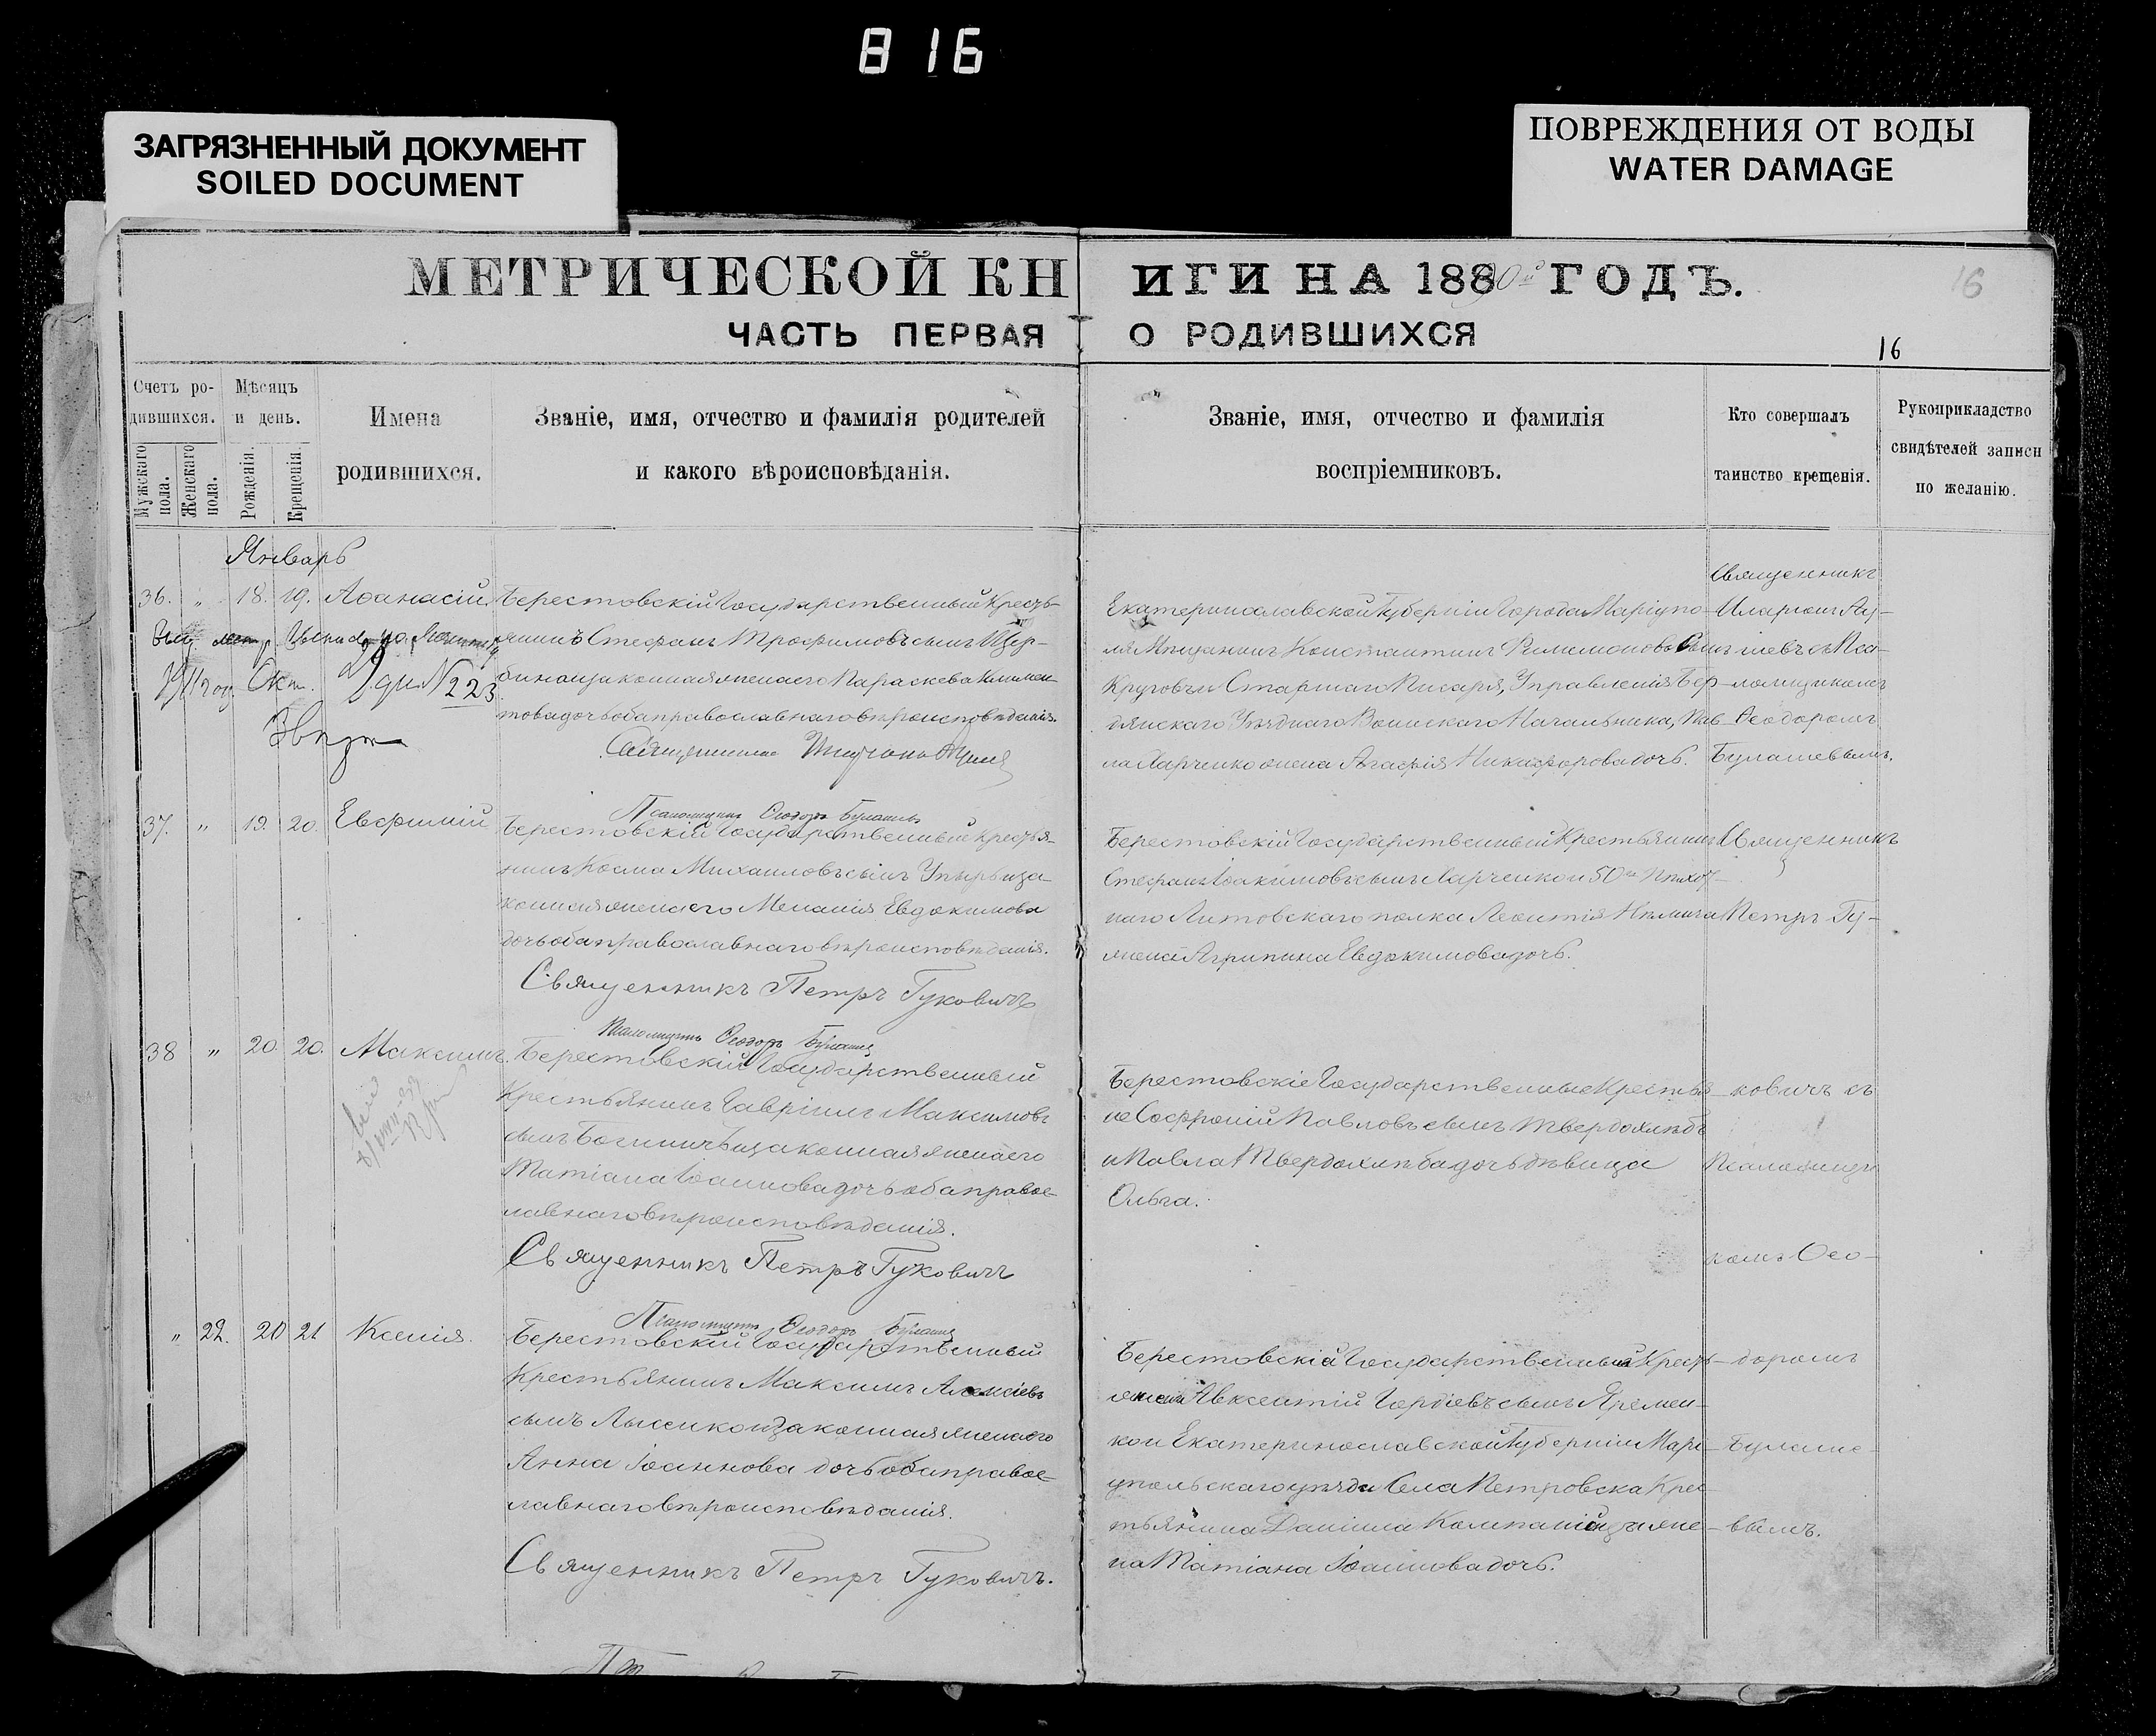 816
ЗАГРЯЗНЕННЫЙ ДОКУМЕНТ
SOILED DOCUMENT
ПОВРЕЖДЕНИЯ ОТ ВОДЫ
WATER DAMAGE
МЕТРИЧЕСКОЙ КНИГИ НА 1890й ГОДЪ.
16
ЧАСТЬ ПЕРВАЯ О РОДИВШИХСЯ
16
Счетъ родившихся.
Мужскаго пола.
Женскаго пола.
Мѣсяцъ и день.
Рожденія.
Крещенія.
Имена
родившихся.
Званіе, имя, отчество и фамилія родителей
и какого вѣроисповѣданія.
Званіе, имя, отчество и фамилія
воспріемниковъ.
Кто совершалъ
таинство крещенія.
Рукоприкладство
свидѣтелей записи
по желанію.
Январь
36. " 18. 19. Аѳанасій.
Берестовскій Государственный Кресть-
янинъ Стефанъ Трофимовъ сынъ Щер-
бина и законная жена его Параскева Климен-
това дочь оба православнаго вѣроисповѣданія.
1911 год Окт. 2 дня № 223
Екатеринославской Губерніи Города Маріупо-
ля Мѣщанинъ Константинъ Филимоновъ Сынъ
Круговъ и Старшаго Писаря, Управленія Бер-
дянскаго Уѣзднаго Воинскаго Начальника, Пав-
ла Харченко жена Агафія Никифорова дочь.
Священникъ
Иларіонъ
съ Пса-
ломщикомъ
Ѳеодоромъ
Булашевымъ.
37. " 19. 20. Евфимій
Псаломщикъ Ѳеодоръ
Берестовскій Государственный Крестья-
нинъ Косма Михаиловъ сынъ Упырь и за-
конная жена его Меланія Евдокимова
дочь оба православнаго вѣроисповѣданія.
Священникъ Петръ Гуковичъ
Берестовскій Государственный Крестьянинъ
Стефанъ Іоакимовъ сынъ Харченко и 50го Пѣхот-
наго Литовскаго полка Леонтія
жена Агрипина Евдокимова дочь.
Священникъ
Петръ Гу-
38 " 20. 20. Максимъ.
Псаломщикъ Ѳеодоръ
Берестовскій Государственный
Крестьянинъ Гавріилъ Максимовъ
сынъ и законная жена его
Татіана Іоаннова дочь оба правос-
лавнаго вѣроисповѣданія.
Священникъ Петръ Гуковичъ
Берестовскіе Государственные Крестья-
не Софроній Павловъ сынъ Твердохлѣбъ
и Павла Твердохлѣба дочь дѣвица
Ольга.
ковичъ съ
Псаломщи
комъ Ѳео-
" 22. 20 21 Ксенія.
Псаломщикъ Ѳеодоръ
Берестовскій Государственный
Крестьянинъ Максимъ Алексіевъ
сынъ Лысенко и законная жена его
Анна Іоаннова дочь оба правос-
лавнаго вѣроисповѣданія.
Священникъ Петръ Гуковичъ.
Берестовскій Государственный Кресть-
янинъ Авксентій Гордіевъ сынъ Яремен-
ко и Екатеринославской Губерніи Маріу-
польскаго уѣзда Села Петровска Крес-
тьянина Даніила Компанійца же-
на Татіана Іоаннова дочь.
доромъ
Булаше-
вымъ.